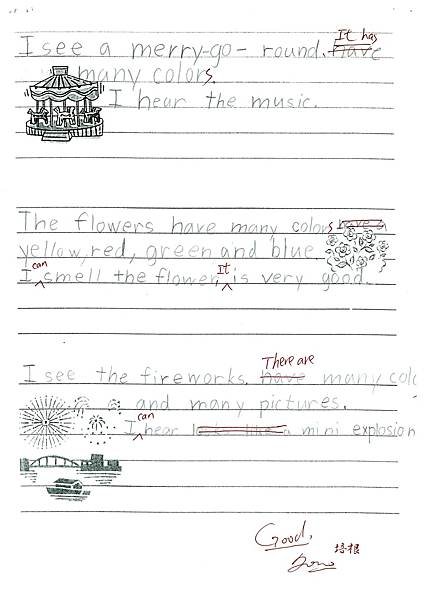 It has
I see a merry-go-round. have
many colors
I hear the music.
The flowers have many colors have a
yellow, red, green and blue.
can It
I smell the flower, is very good.
There are
I see the fireworks. have many colo
and many pictures.
can
I hear like a mini explosion
Good.
培根